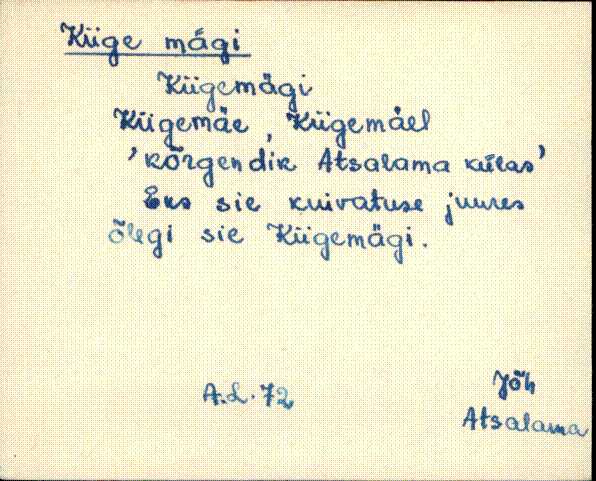 Kiige mägi
Kiigemägi
Kiigemäe, Kiigemäel
'kõrgendik Atsalama külas'
Eks sie kuivatuse juures
õlegi sie Kiigemägi.
A.L. 72
Jõh
Atsalama